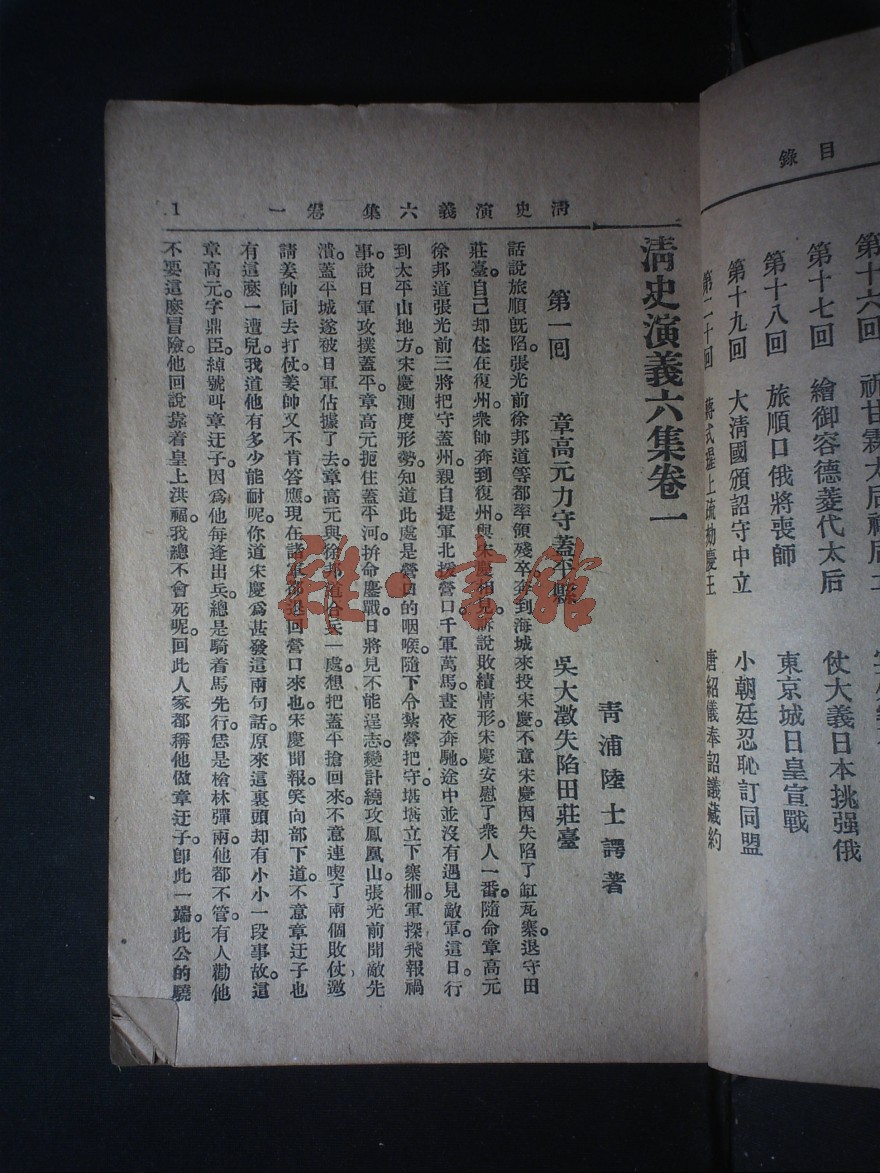 目錄
第十六回
第十七回 繪御容德菱代太后 仗大義日本挑强俄
第十八回 旅順口俄將喪師 東京城日皇宣戰
第十九回 大清國頒詔守中立 小朝廷忍恥訂同盟
第二十回 蔣式瑆上疏劾慶王 唐紹儀奉詔議藏約
清史演義六集 卷一 1
清史演義六集卷一
青浦陸士諤著
第一回 章高元力守蓋平縣 吳大澂失陷田莊臺
話說旅順旣陷。張光前徐邦道等都率領殘卒。奔到海城來投宋慶。不意宋慶因失陷了缸瓦寨。退守田
莊臺。自己却住在復州。衆帥奔到復州。與宋慶相見。訴說敗績情形。宋慶安慰了衆人一番。隨命章高元
徐邦道張光前三將把守蓋州。親自提軍北援營口。千軍萬馬。晝夜奔馳。途中並沒有遇見敵軍。這日。行
到太平山地方。宋慶測度形勢。知道此處是營口的咽喉。隨下令紮營把守。堪堪立下寨柵。軍探飛報禍
事。說日軍攻撲蓋平。章高元扼住蓋平河。拚命鏖戰。日將見不能逞志。變計繞攻鳳凰山。張光前聞敵先
潰。蓋平城遂被日軍佔據了去。章高元與徐邦道合兵一處。想把蓋平搶回來。不意連喫了兩個敗仗。邀
請姜帥同去打仗。姜帥又不肯答應。現在諸軍都退回營口來也。宋慶聞報。笑向部下道。不意章迂子也
有這麽一遭兒。我道他有多少能耐呢。你道宋慶爲甚發這兩句話。原來這裏頭却有小小一段事故。這
章高元。字鼎臣。綽號叫章迂子。因爲他每逢出兵。總是騎着馬先行。恁是槍林彈雨。他都不管。有人勸他
不要這麽冒險。他回說靠着皇上洪福。我總不會死呢。回此人家都稱他做章迂子。卽此一端。此公的驍
雒·書館